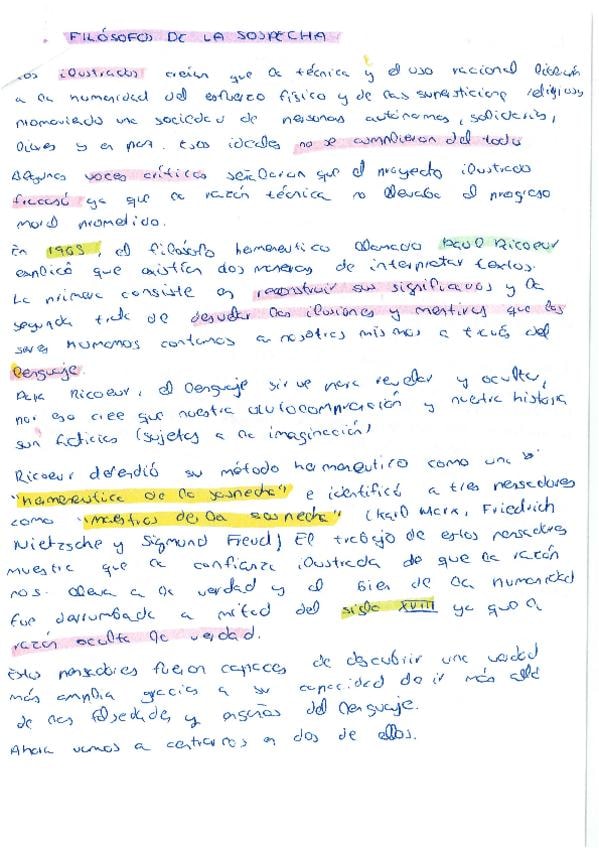 FILÓSOFOS DE LA SOSPECHA
Los ilustrados creían que la técnica y el uso racional
a la humanidad del esfuerzo físico y de las supersticiones religiosas
promoviendo una sociedad de personas autónomas, solidarias,
libres y en paz. Esos ideales no se cumplieron del todo
Algunas voces críticas señalaron que el proyecto ilustrado
fracasó ya que la razón técnica no llevaba al progreso
moral prometido.
En 1965, el filósofo hermeneutico alemán Paul Ricoeur
explicó que existían dos maneras de interpretar textos.
La primera consiste en reconstruir sus significados y la
segunda trata de desvelar las ilusiones y mentiras que los
seres humanos contamos a nosotros mismos a través del
lenguaje.
Para Ricoeur, el lenguaje sirve para revelar y ocultar,
por eso cree que nuestra autocomprensión y nuestra historia
son ficticias (sujetas a la imaginación)
Ricoeur defendió su método hermeneutico como una
"hermeneutica de la sospecha" e identificó a tres pensadores
como "maestros de la sospecha" (Karl Marx, Friedrich
Nietzsche y Sigmund Freud) El trabajo de estos pensadores
muestra que la confianza ilustrada de que la razón
nos lleva a la verdad y al bien de la humanidad
fue derrumbada a mitad del siglo XVIII ya que la
razón oculta la verdad.
Estos pensadores fueron capaces de descubrir una verdad
más amplia gracias a su capacidad de ir más allá
de las falsedades y engaños del lenguaje.
Ahora vamos a centrarnos en dos de ellos.